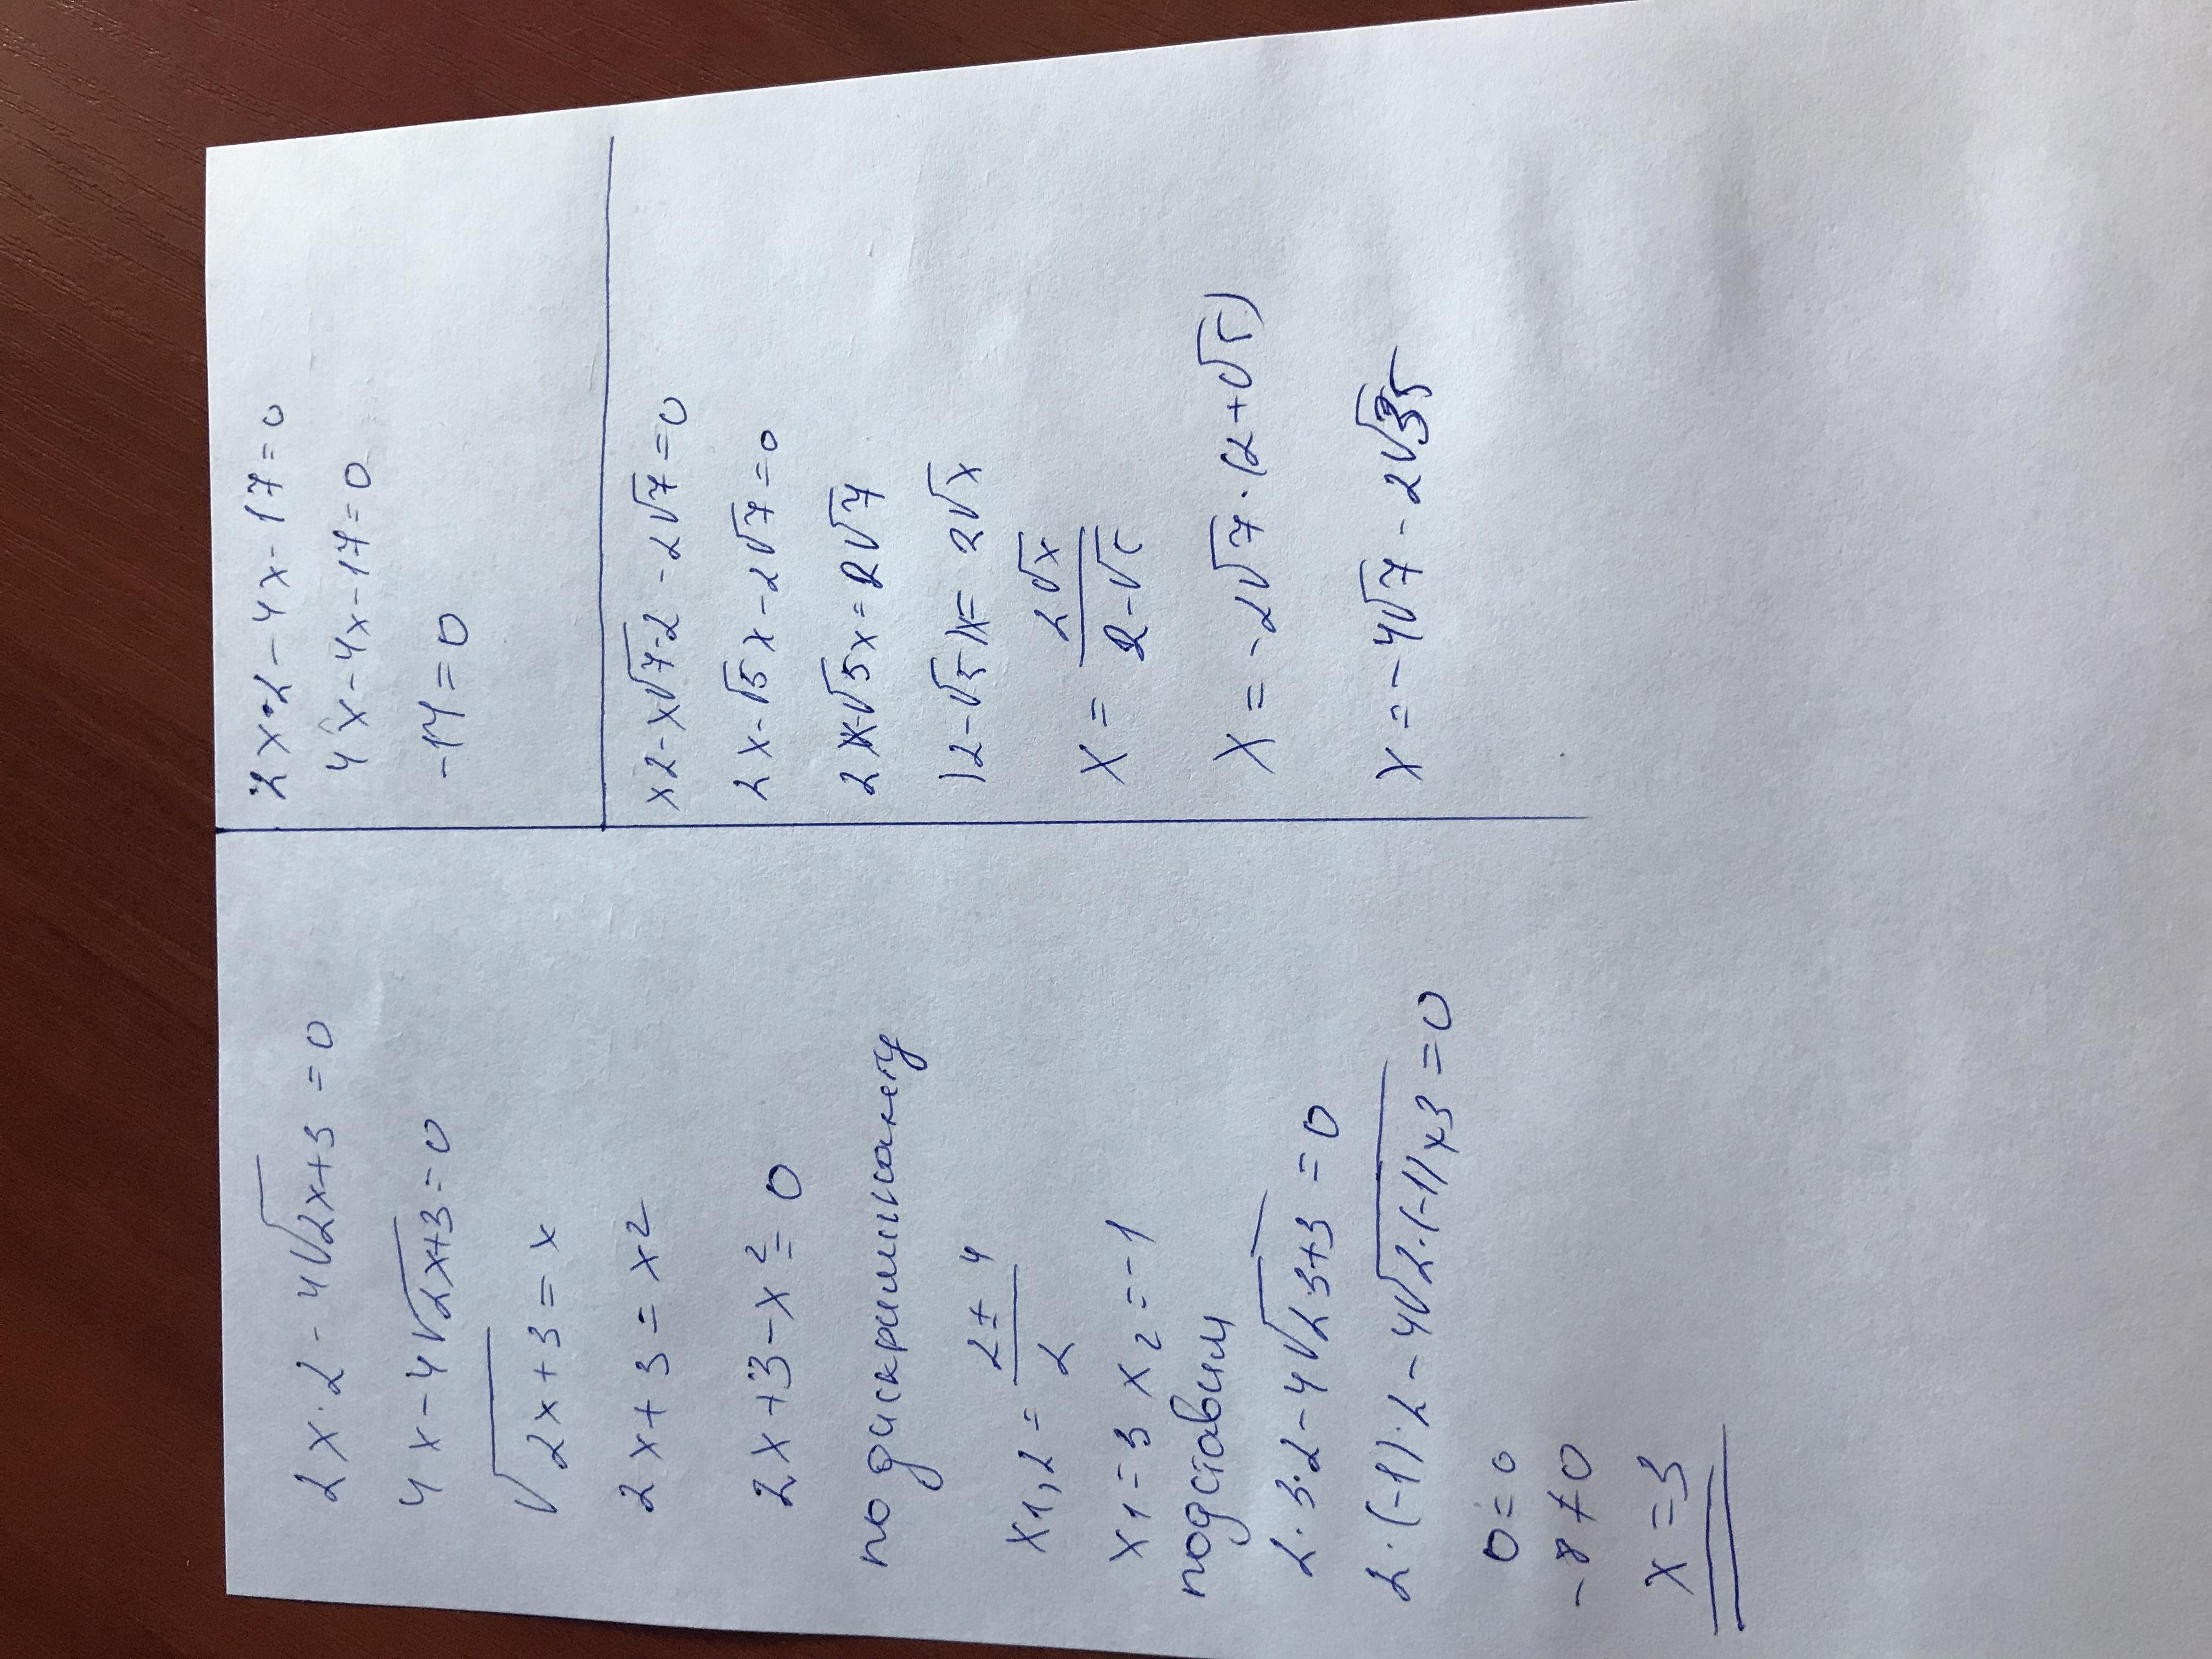 2x·2 - 4√2x+3 = 0
4x - 4√2x+3 = 0
√2x+3 = x
2x+3 = x2
2x+3-x2 = 0
по дискриминанту
x1,2 = 2±4/2
x1=3 x2=-1
подставим
2·3·2-4√2·3+3 = 0
2·(-1)·2-4√2·(-1)+3 = 0
0=0
-8≠0
x=3
2x·2-4x-17=0
4x-4x-17=0
-17=0
x2-x√7-2-2√7=0
2x-√5x-2√7=0
2x-√5x=2√7
(2-√5)x=2√x
x=2√x/2-√5
x=-2√7·(2+√5)
x=-4√7-2√35